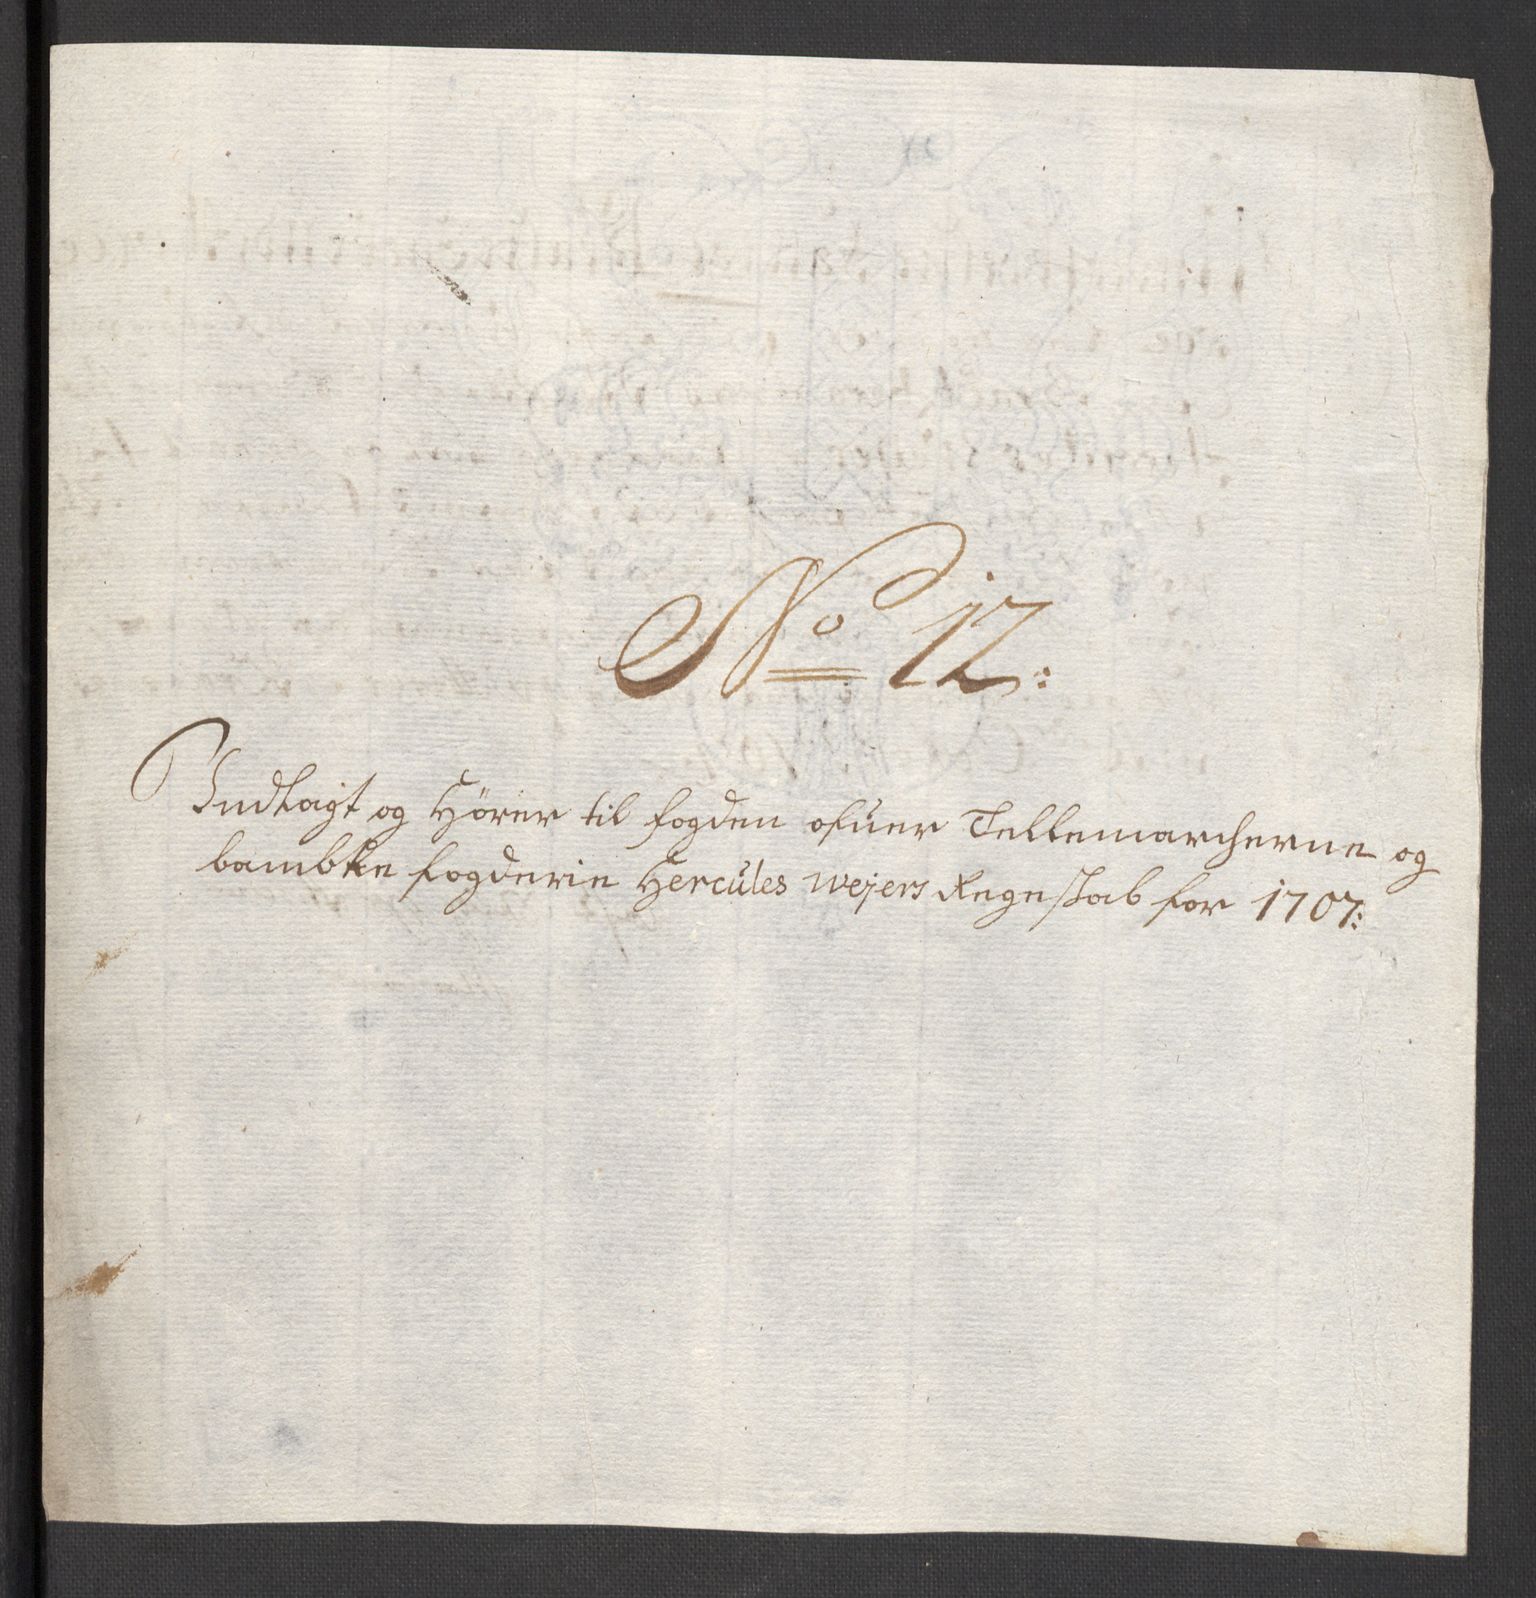 No 12:
Indlagt og Hører til fogden ofuer Tellemarcherne og
bambke fogderie Hercules Wejers Regenskab for 1707: